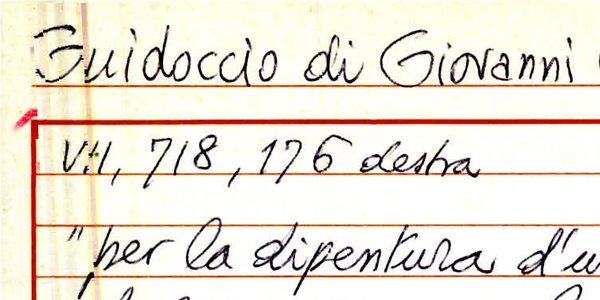 Guidoccio di Giovanni
VII, 718, 176 destra
"per la dipentura d'u